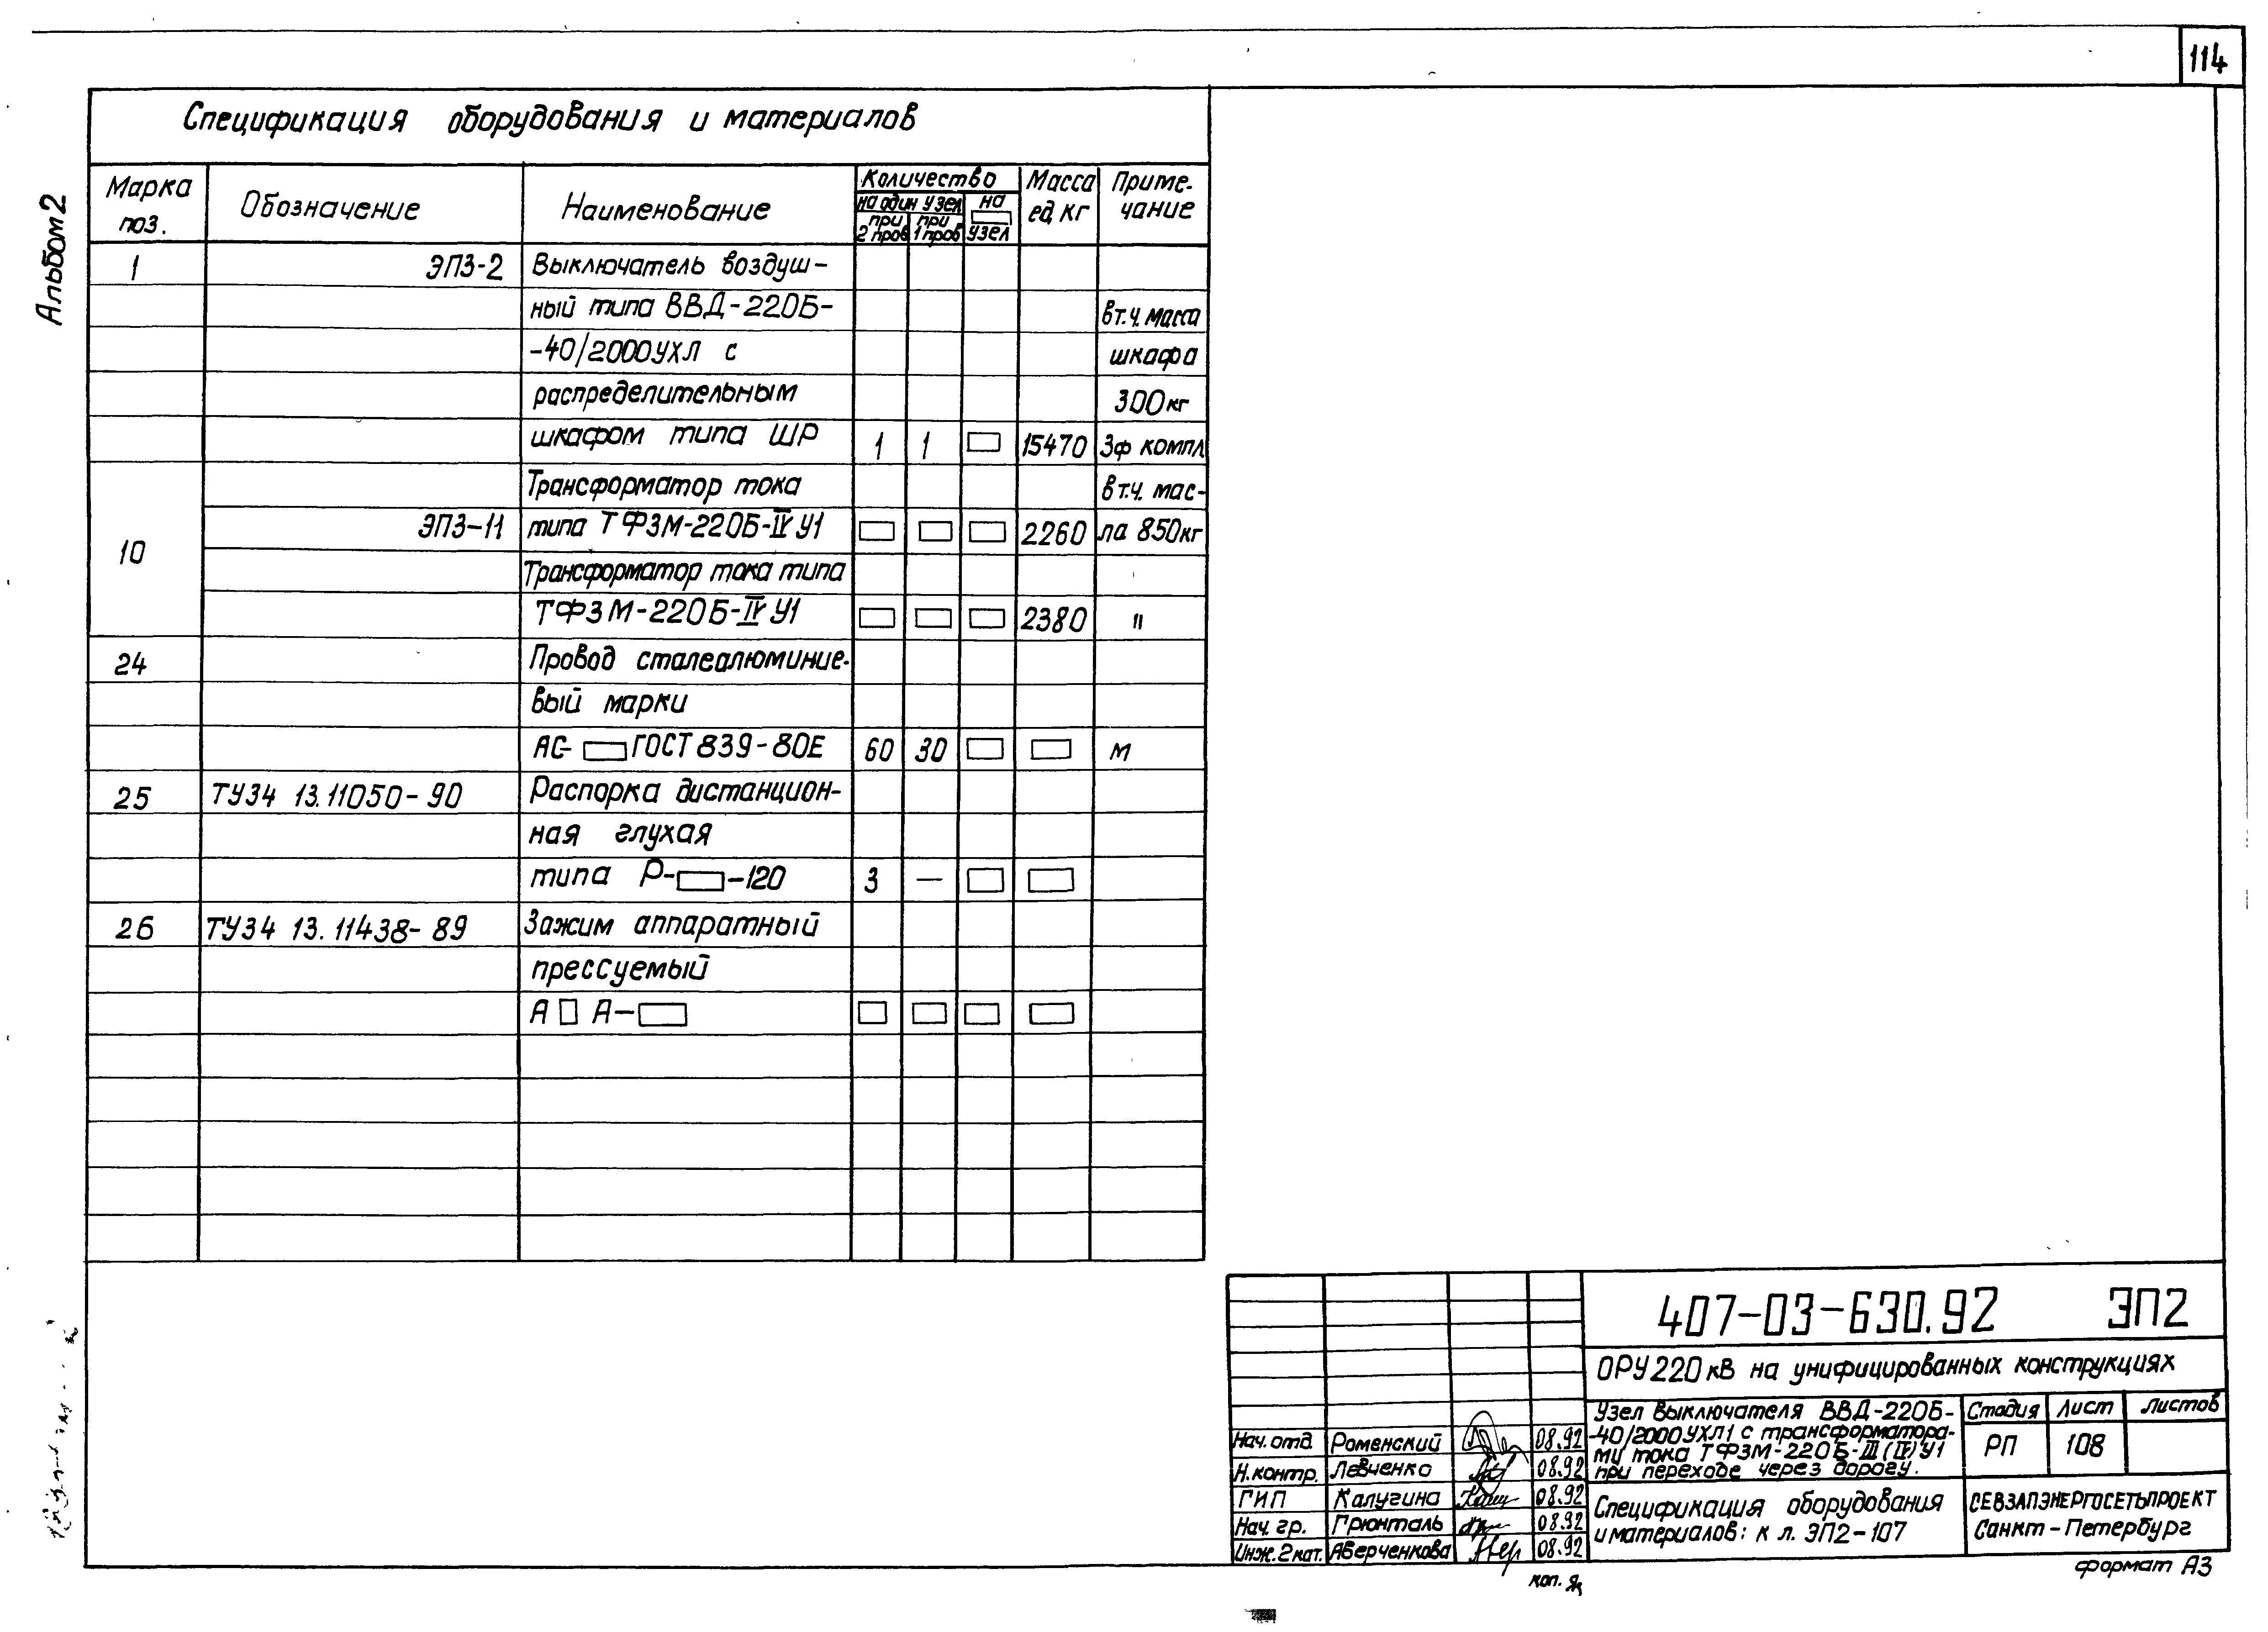 114
Альбом 2
Спецификация оборудования и материалов
Марка поз.
Обозначение
Наименование
Количество
на один узел
при 2 пров
при 1 пров
на □ узел
Масса ед, кг
Приме- чание
1 ЭП3-2 Выключатель воздуш-
ный типа ВВД-220Б- в т.ч. масса
-40/2000УХЛ с шкафа
распределительным 300 кг
шкафом типа ШР 1 1 □ 15470 3ф компл
10
Трансформатор тока в т.ч. мас-
ЭП3-11 типа ТФЗМ-220Б-IV У1 □ □ □ 2260 ла 850кг
Трансформатор тока типа
ТФЗМ-220Б-IV У1 □ □ □ 2380 "
24 Провод сталеалюминие-
вый марки
АС- □ ГОСТ 839-80Е 60 30 □ □ м
25 ТУ34 13.11050-90 Распорка дистанцион-
ная глухая
типа Р-□-120 3 — □ □
26 ТУ34 13.11438-89 Зажим аппаратный
прессуемый
А □ А-□ □ □ □ □
407-03-630.92 ЭП2
ОРУ 220 кВ на унифицированных конструкциях
Узел выключателя ВВД-220Б-
-40/2000УХЛ1 с трансформатора-
ми тока ТФЗМ-220Б-III (IV) У1
при переходе через дорогу.
Стадия Лист Листов
РП 108
Нач. отд. Роменский 08.92
Н. контр. Левченко 08.92
ГИП Калугина 08.92
Нач. гр. Грюнталь 08.92
Инж. 2 кат. Аверченкова 08.92
Спецификация оборудования
и материалов: к л. ЭП2-107
СЕВЗАПЭНЕРГОСЕТЬПРОЕКТ
Санкт-Петербург
коп.
формат А3